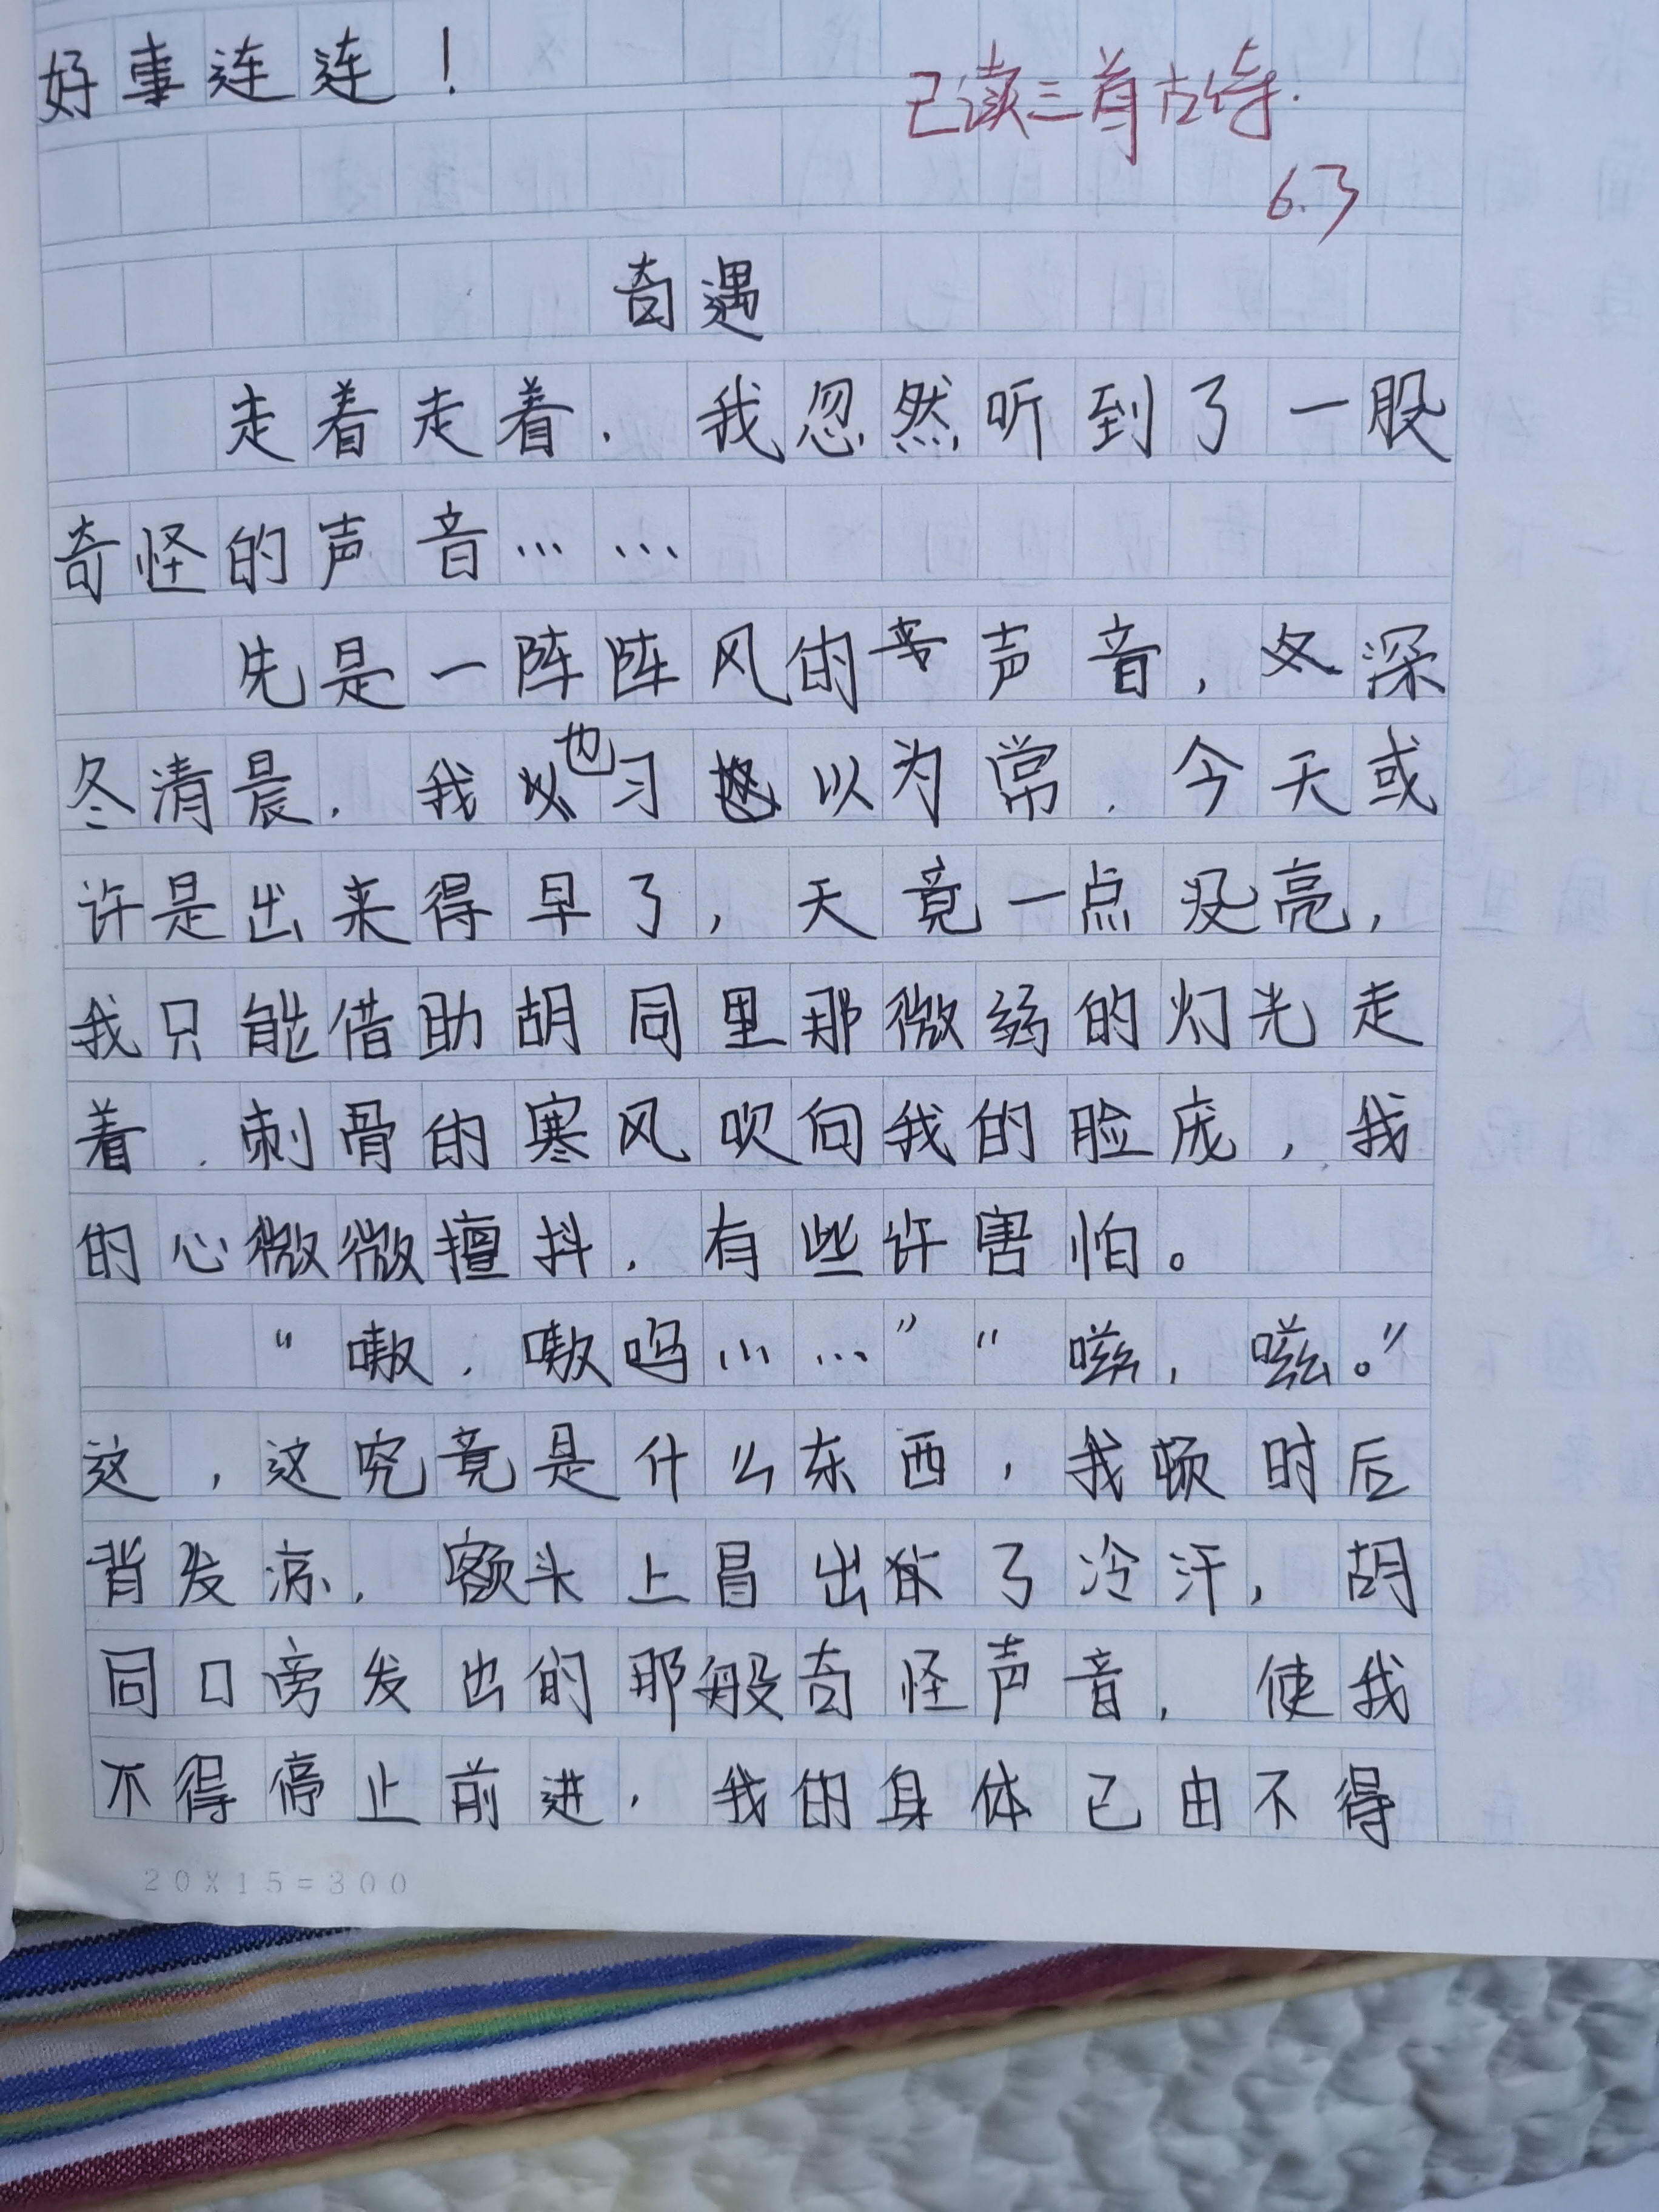 好事连连！
已读三首古诗.
6.3
奇遇
走着走着，我忽然听到了一股
奇怪的声音……
先是一阵阵风的声音，深
冬清晨，我也习以为常，今天或
许是出来得早了，天竟一点没亮，
我只能借助胡同里那微弱的灯光走
着，刺骨的寒风吹向我的脸庞，我
的心微微擅抖，有些许害怕。
“嗷，嗷呜……”“嗞，嗞。”
这，这究竟是什么东西，我顿时后
背发凉，额头上冒出了冷汗，胡
同口旁发出的那般奇怪声音，使我
不得停止前进，我的身体已由不得
20X15=300